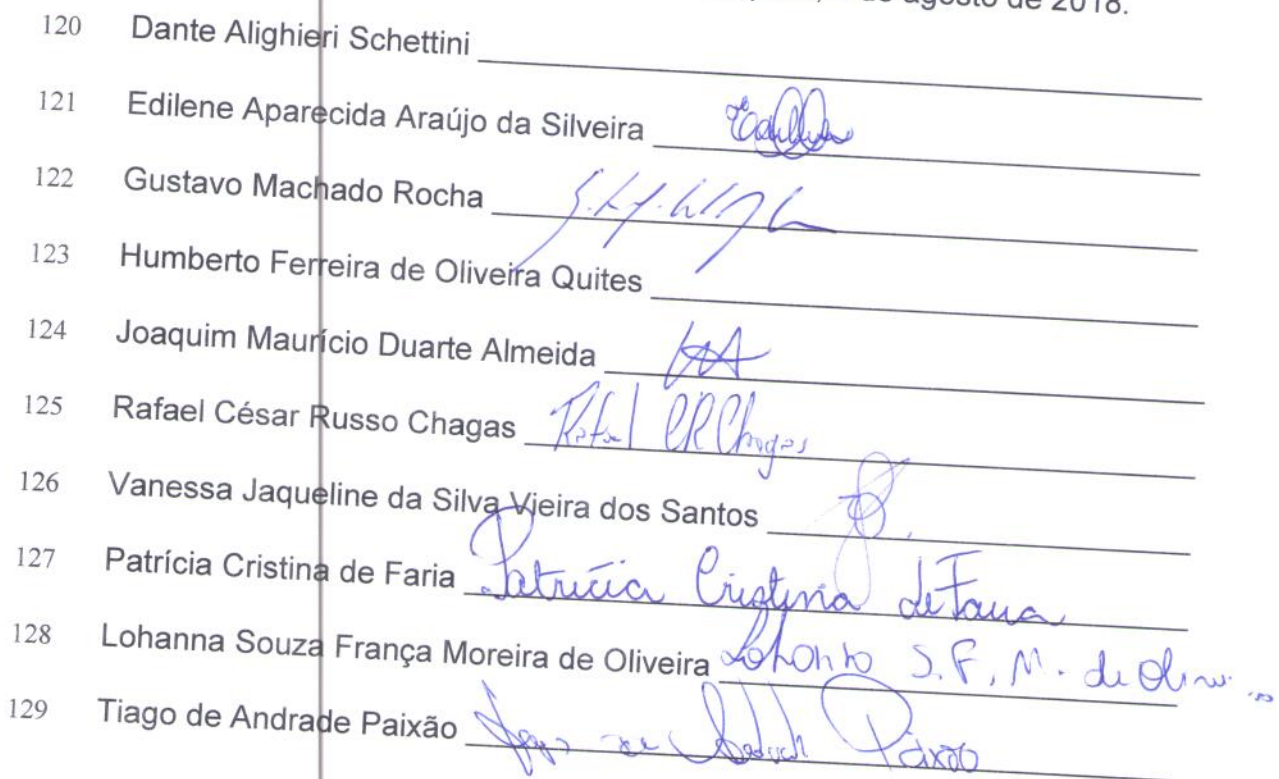 agosto de 2018.
120 Dante Alighieri Schettini
121 Edilene Aparecida Araújo da Silveira
122 Gustavo Machado Rocha
123 Humberto Ferreira de Oliveira Quites
124 Joaquim Maurício Duarte Almeida
125 Rafael César Russo Chagas Rafael CR Chagas
126 Vanessa Jaqueline da Silva Vieira dos Santos
127 Patrícia Cristina de Faria Patrícia Cristina de Faria
128 Lohanna Souza França Moreira de Oliveira Lohanna S. F. M. de Oliveira
129 Tiago de Andrade Paixão Tiago de Andrade Paixão